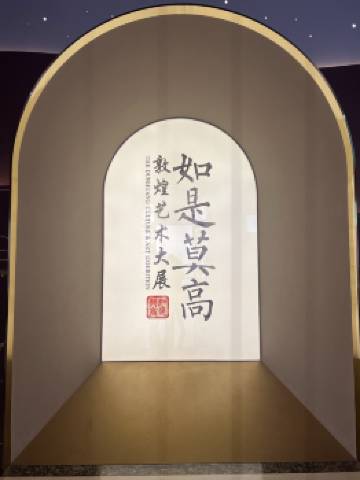 如是莫高
敦煌艺术大展
THE DUNHUANG CULTURE & ART EXHIBITION